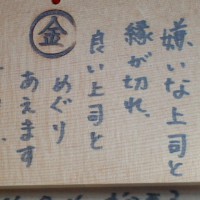 嫌いな上司と
縁が切れ、
良い上司と
めぐり
あえます
金